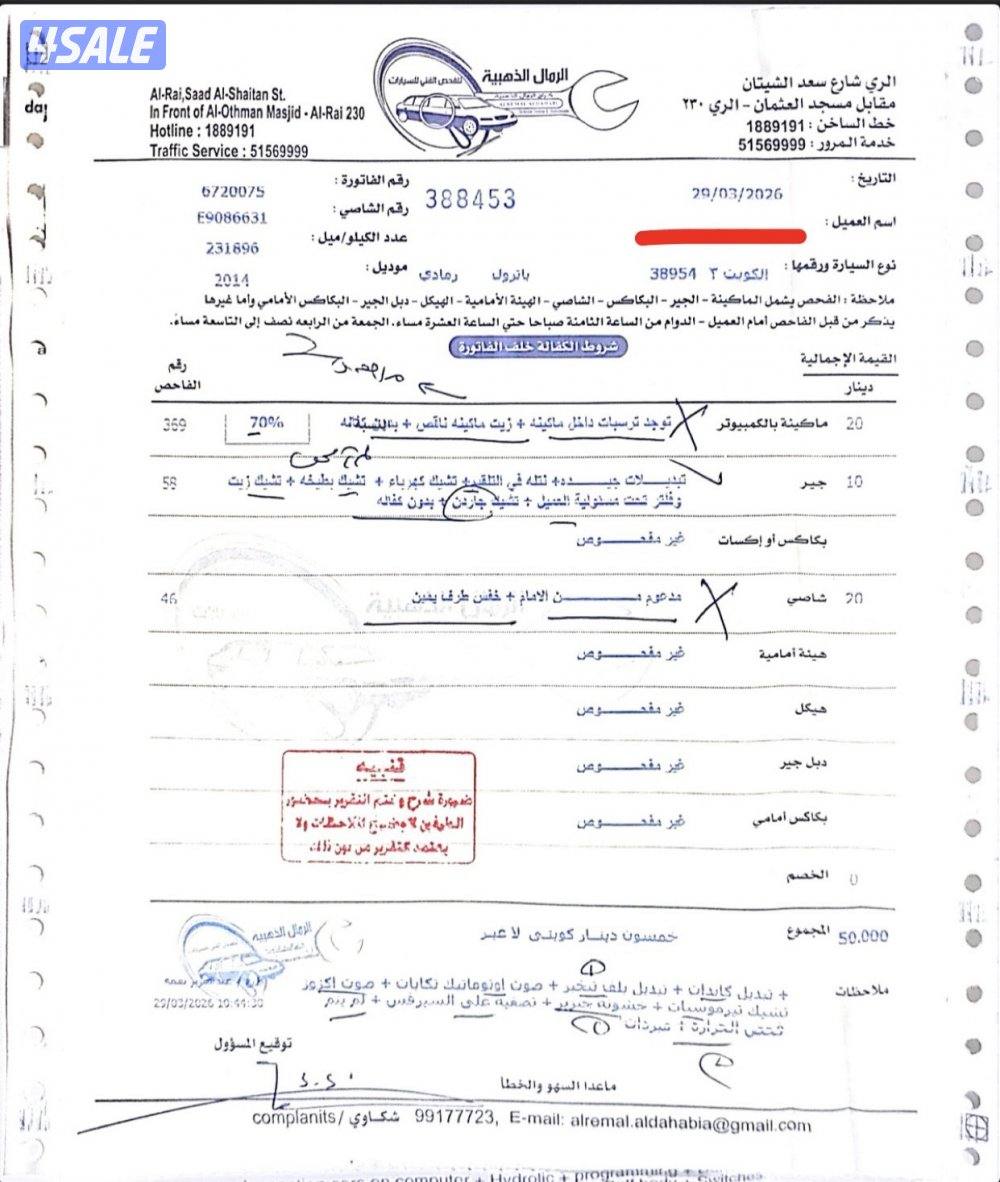 4SALE
day
الرمال الذهبية
للفحص الفني للسيارات
Al-Rai,Saad Al-Shaitan St.
In Front of Al-Othman Masjid - Al-Rai 230
Hotline : 1889191
Traffic Service : 51569999
الري شارع سعد الشيتان
مقابل مسجد العثمان - الري ٢٣٠
خط الساخن : 1889191
خدمة المرور : 51569999
التاريخ : 29/03/2026
388453
رقم الفاتورة : 6720075
اسم العميل :
رقم الشاصي : E9086631
عدد الكيلو/ميل : 231896
نوع السيارة ورقمها : الكويت ٣ 38954 باترول رمادي
موديل : 2014
ملاحظة : الفحص يشمل الماكينة - الجير - البكاكس - الشاصي - الهيئة الأمامية - الهيكل - دبل الجير - البكاكس الأمامي وأما غيرها
يذكر من قبل الفاحص أمام العميل - الدوام من الساعة الثامنة صباحا حتي الساعة العشرة مساء. الجمعة من الرابعه نصف إلى التاسعة مساء.
شروط الكفالة خلف الفاتورة
القيمة الإجمالية
دينار
رقم الفاحص
20 ماكينة بالكمبيوتر توجد ترسبات داخل ماكينه + زيت ماكينه ناقص + بدون كفاله 70% 369
10 جير تبديلات جيده + نتله في التلقير + تشيك كهرباء + تشيك بطيخه + تشيك زيت 58
وفلتر تحت مسئولية العميل + تشيك جاردن + بدون كفاله
بكاكس أو إكسات غير مفحوص
20 شاصي مدعوم من الامام + خفس طرف يمين 46
هيئة أمامية غير مفحوص
هيكل غير مفحوص
دبل جير غير مفحوص
بكاكس أمامي غير مفحوص
تنبيه
ضرورة شرح و ختم التقرير بحضور
الخصم 0
المجموع 50.000 خمسون دينار كويتى لا غير
الرمال الذهبية
ملاحظات + تبديل كايدات + تبديل بلف تبخير + صوت اوتوماتيك تكايات + صوت اكزوز
تشيك ثيرموستات + خشونه جنزير + تصفية على السيرفس + لم يتم
ثنتس الحرارة : تبردات
29/03/2026 10:44:30
توقيع المسؤول
ماعدا السهو والخطأ
complanits / شكاوي 99177723, E-mail: alremal.aldahabia@gmail.com